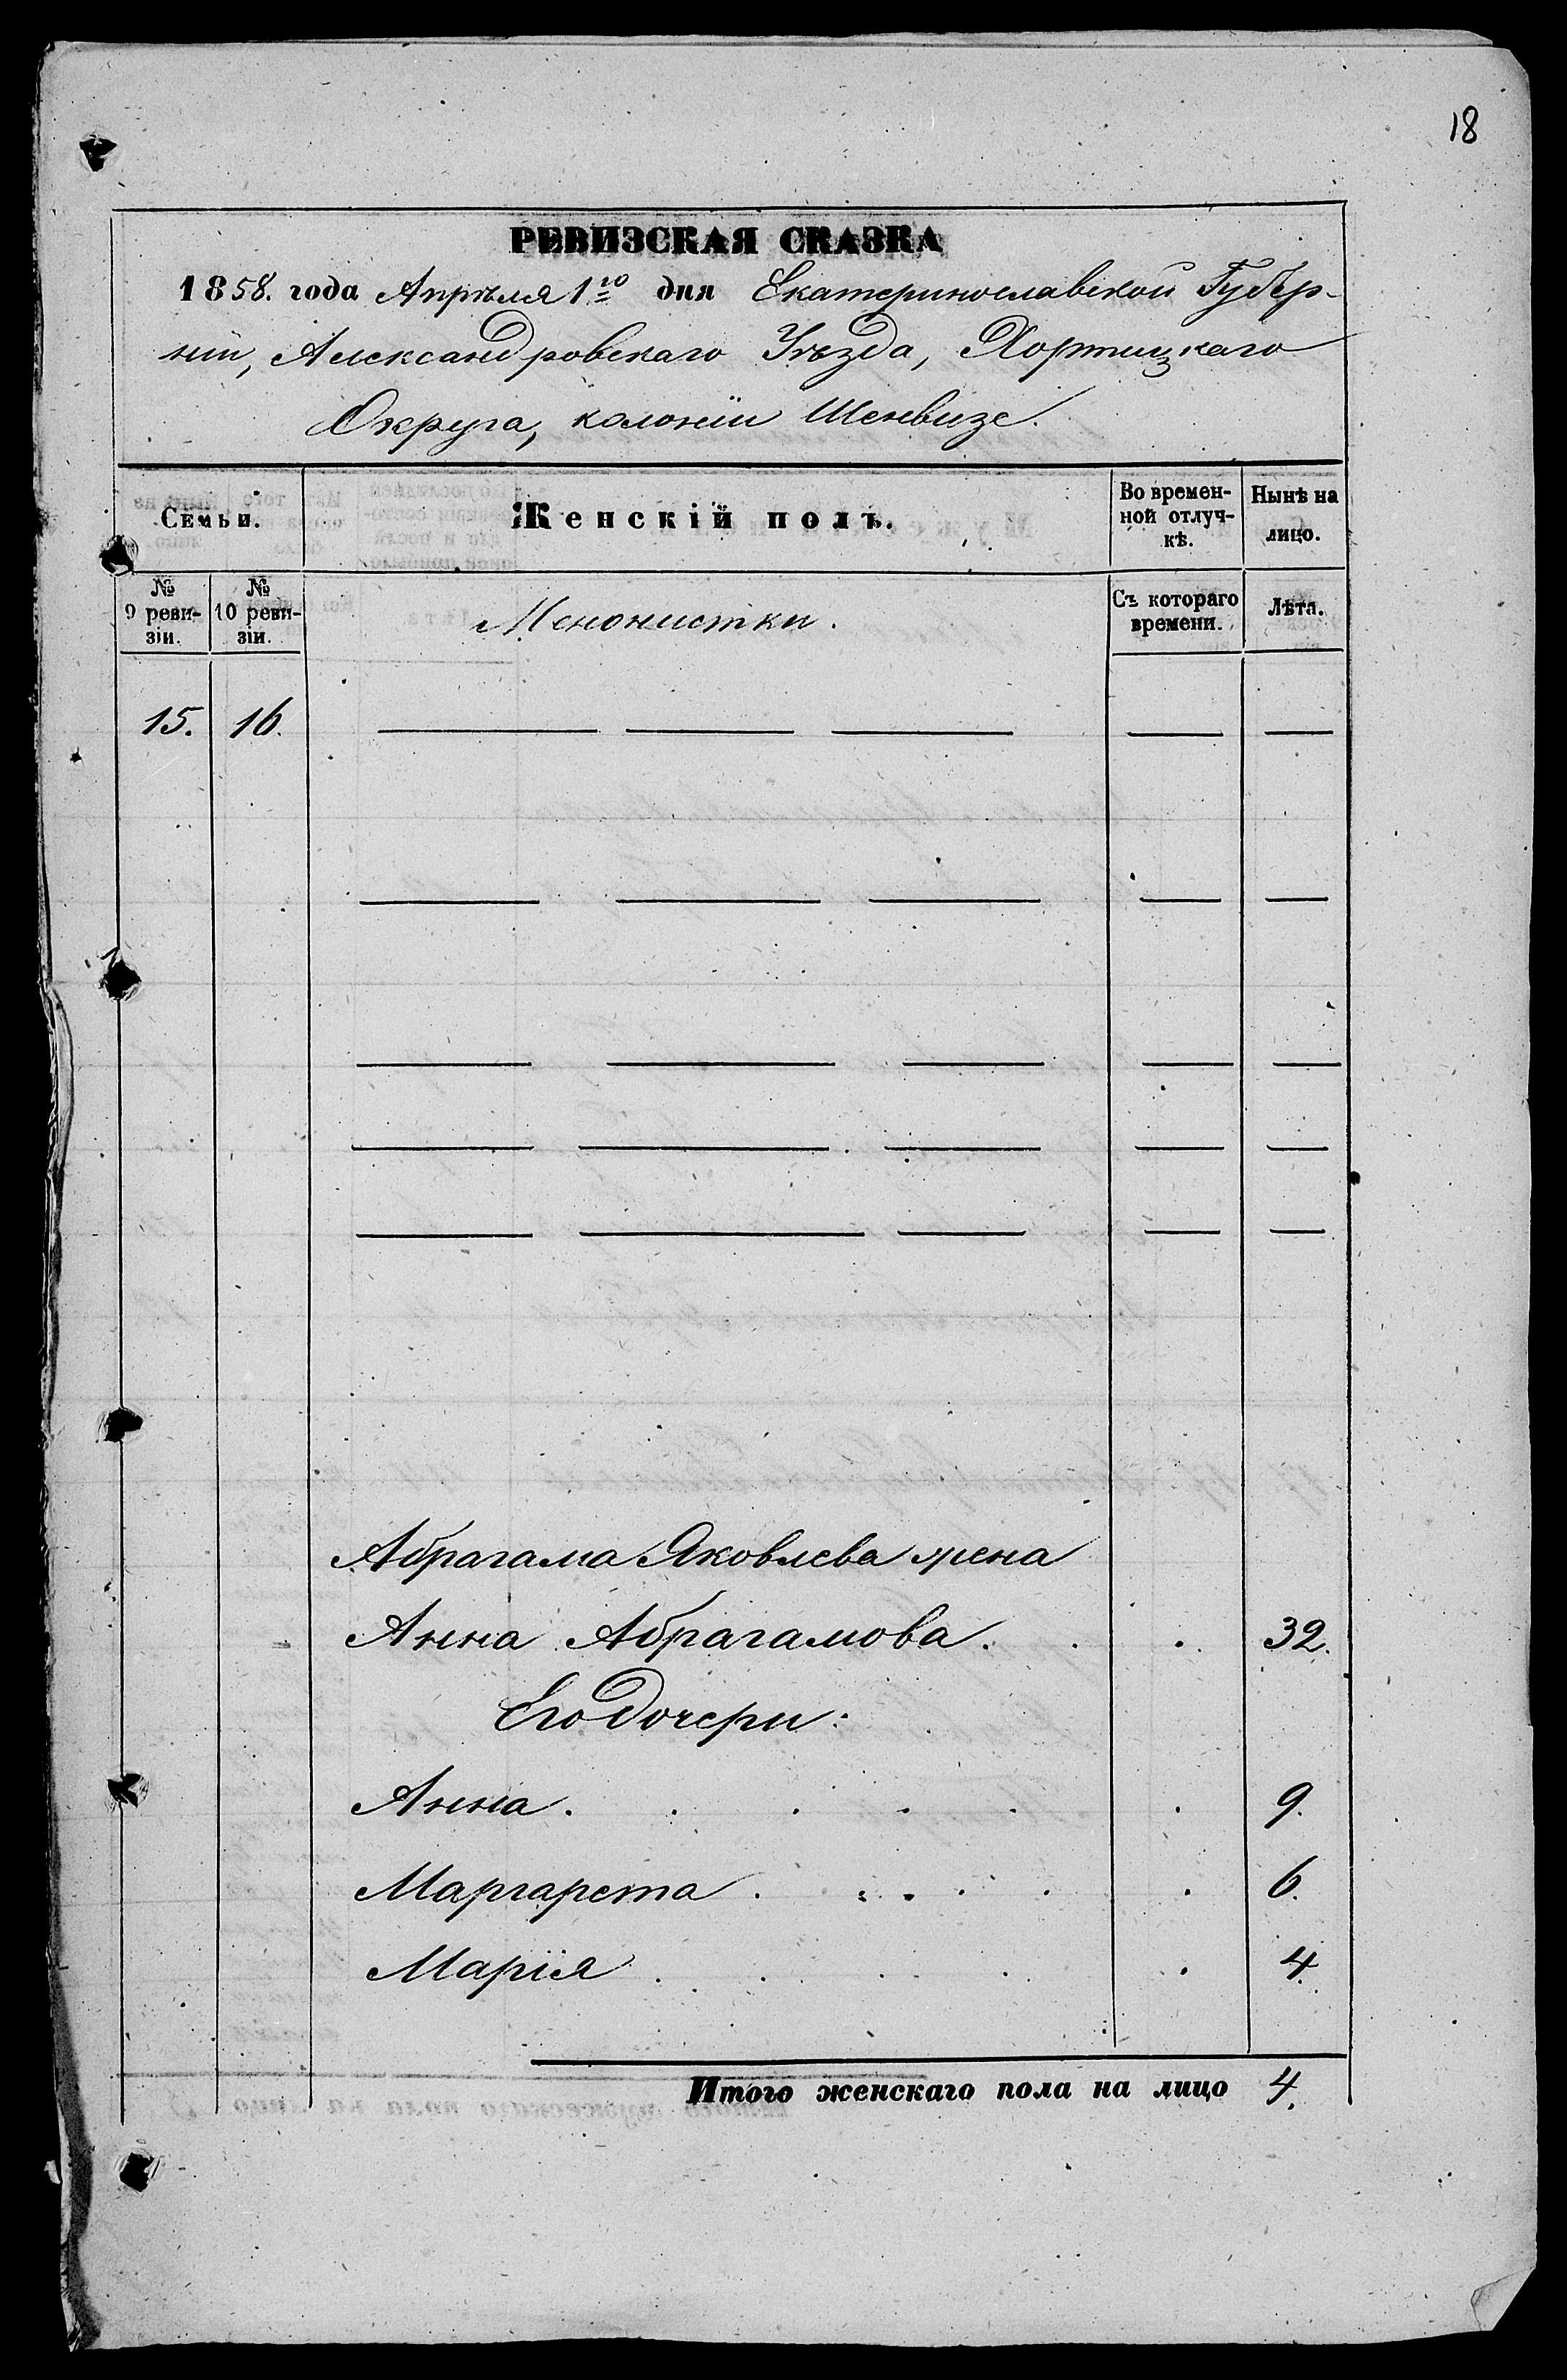 18
РЕВИЗСКАЯ СКАЗКА
1858. года Апрѣля 1го дня Екатеринославской Губер-
нiи, Александровскаго Уѣзда, Хортицкаго
Округа, колонiи Шенвизе.
Семьи.
Женскiй полъ.
Во времен-
ной отлуч-
кѣ.
Нынѣ на
лицо.
№
9 реви-
зiи.
№
10 реви-
зiи.
Менонистки.
Съ котораго
времени.
Лѣта.
15. 16.
Абрагама Яковлева жена
Анна Абрагамова. 32.
Его дочери:
Анна. 9.
Маргарета. 6.
Марiя 4.
Итого женскаго пола на лицо 4.